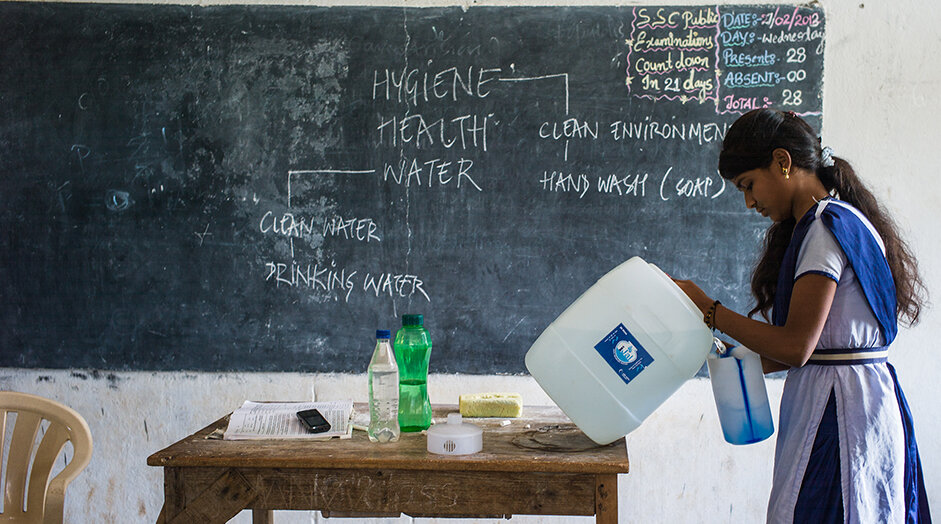 HYGIENE
HEALTH
WATER
CLEAN WATER
DRINKING WATER
CLEAN ENVIRONMEN
HAND WASH (SOAP)
SSC Public
Examinations
Count down
In 21 days
DATE:- /02/2013
DAY:- Wednesday
Presents: 28
ABSENTS:- 00
TOTAL:- 28